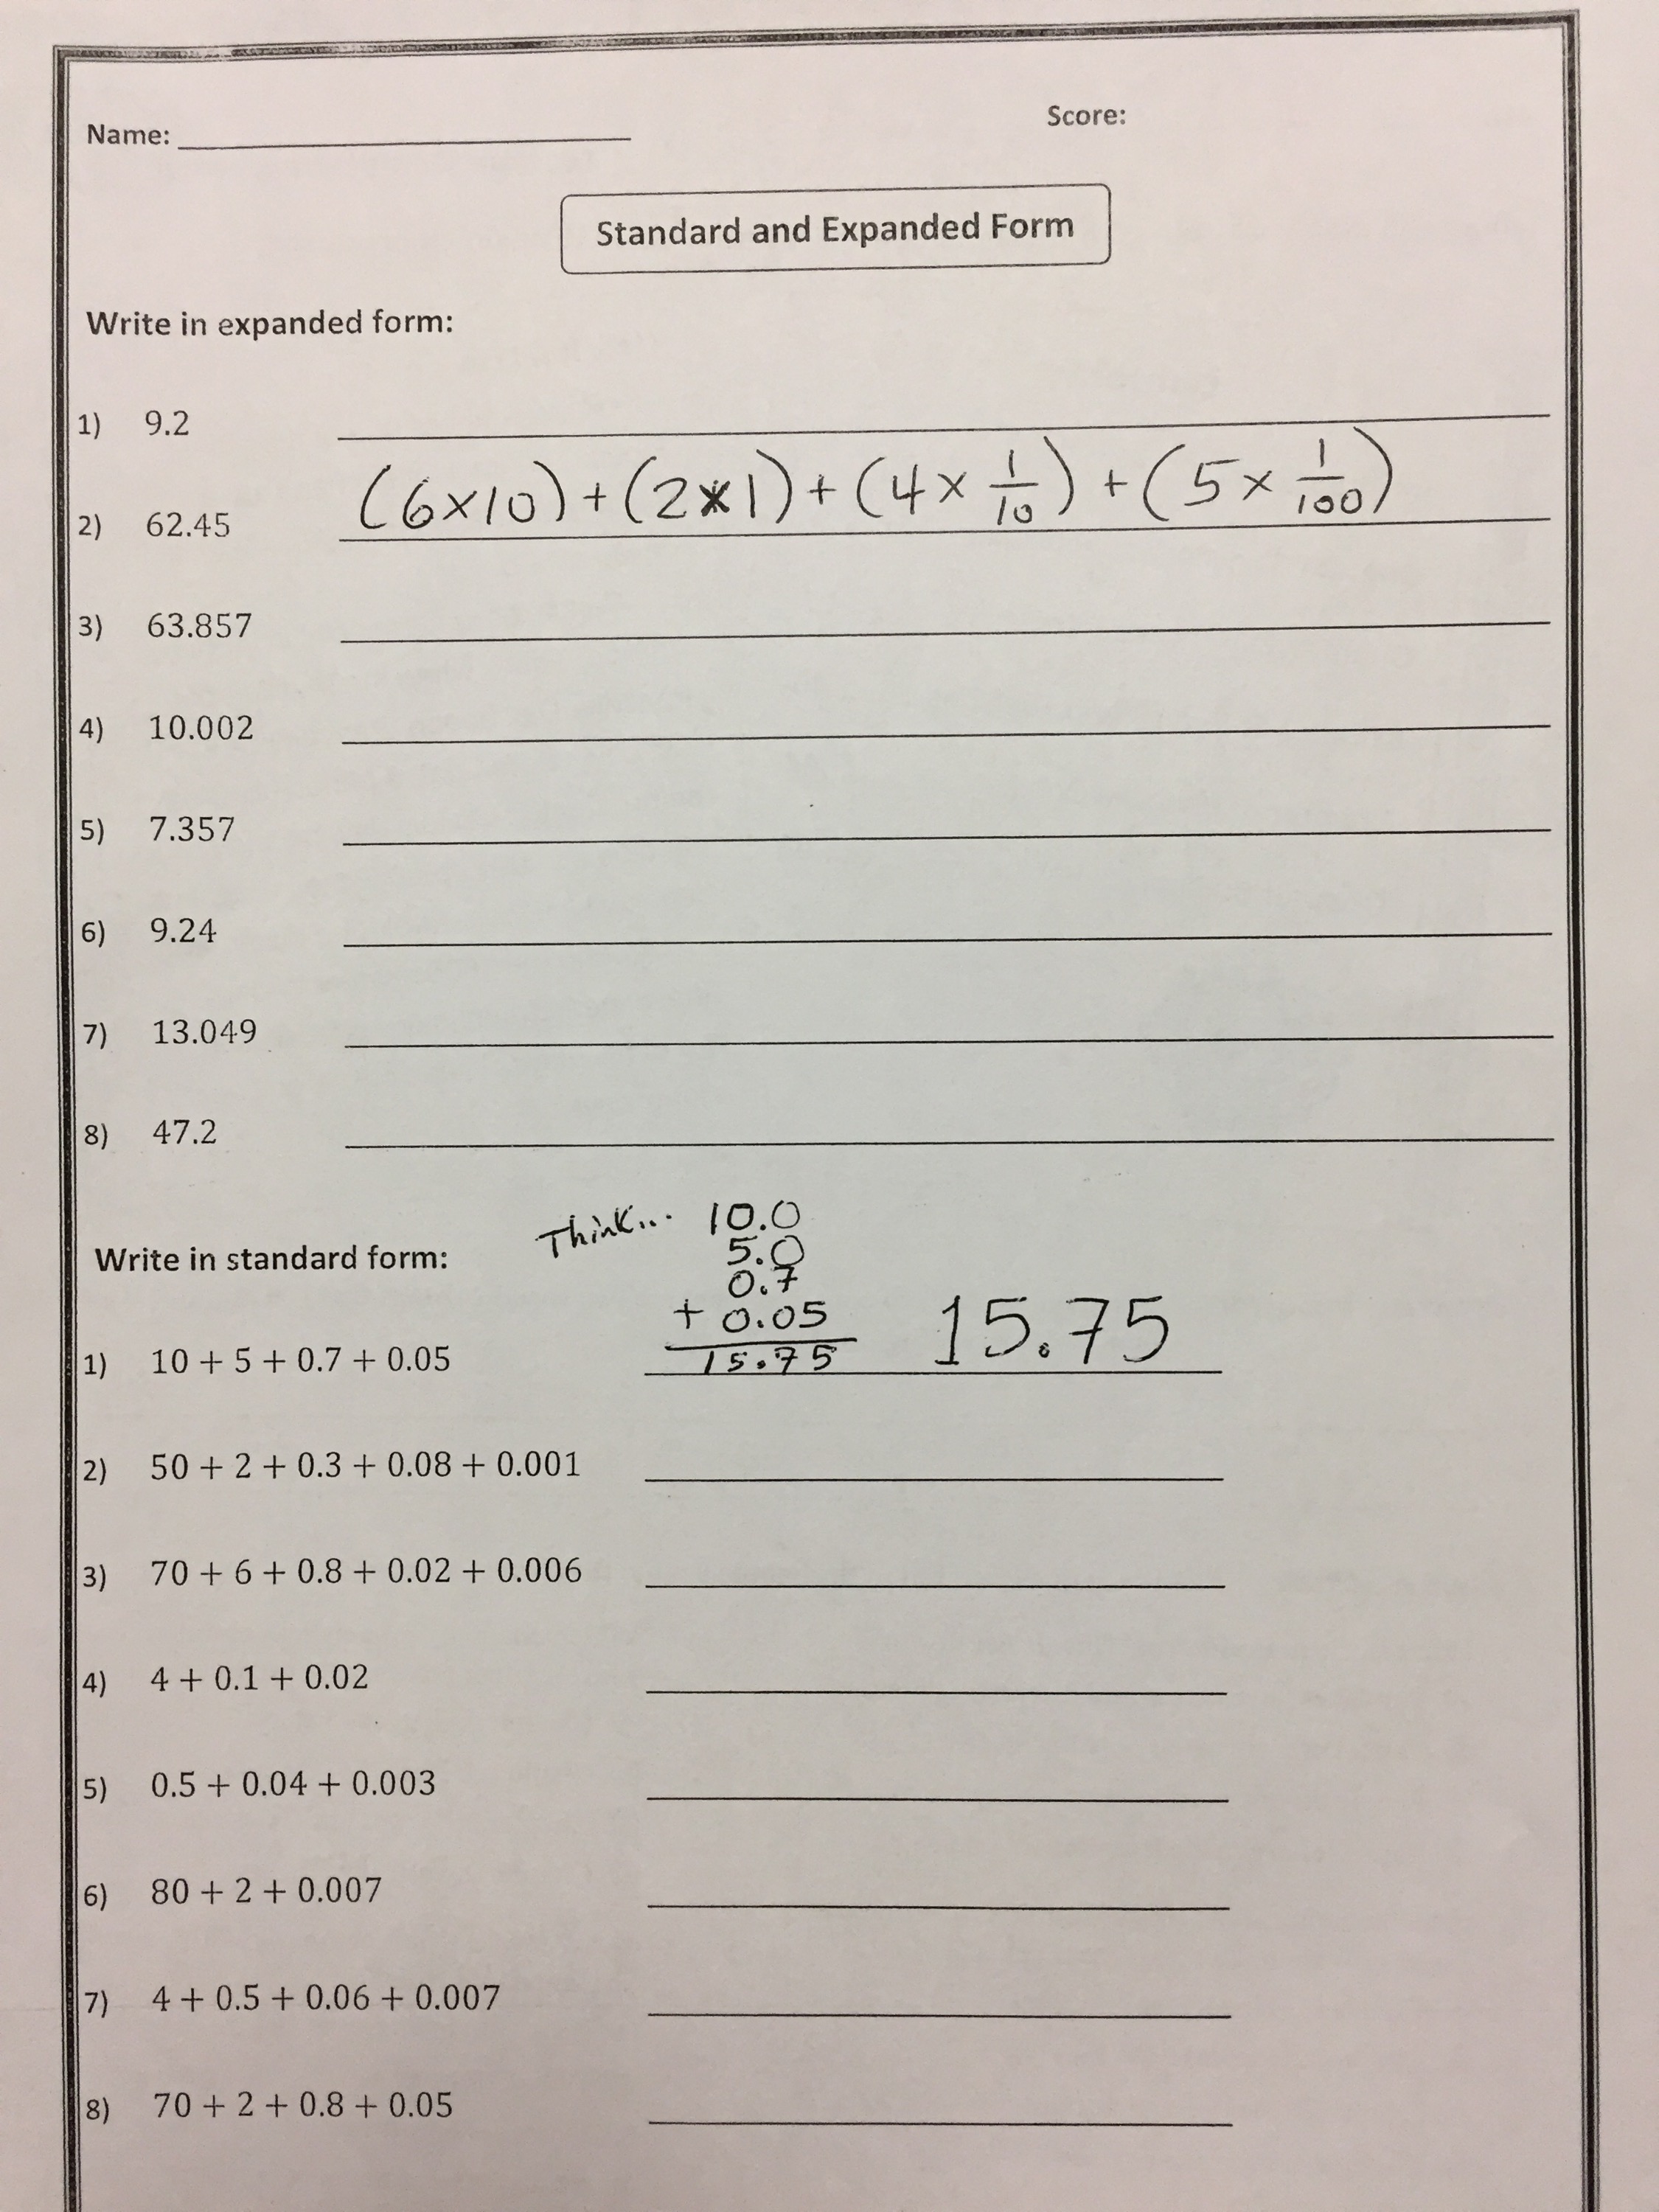 Name: Score:
Standard and Expanded Form
Write in expanded form:
1) 9.2
2) 62.45 (6×10)+(2×1)+(4×1/10)+(5×1/100)
3) 63.857
4) 10.002
5) 7.357
6) 9.24
7) 13.049
8) 47.2
Write in standard form:
Think... 10.0
5.0
0.7
+ 0.05
15.75
1) 10 + 5 + 0.7 + 0.05 15.75
2) 50 + 2 + 0.3 + 0.08 + 0.001
3) 70 + 6 + 0.8 + 0.02 + 0.006
4) 4 + 0.1 + 0.02
5) 0.5 + 0.04 + 0.003
6) 80 + 2 + 0.007
7) 4 + 0.5 + 0.06 + 0.007
8) 70 + 2 + 0.8 + 0.05